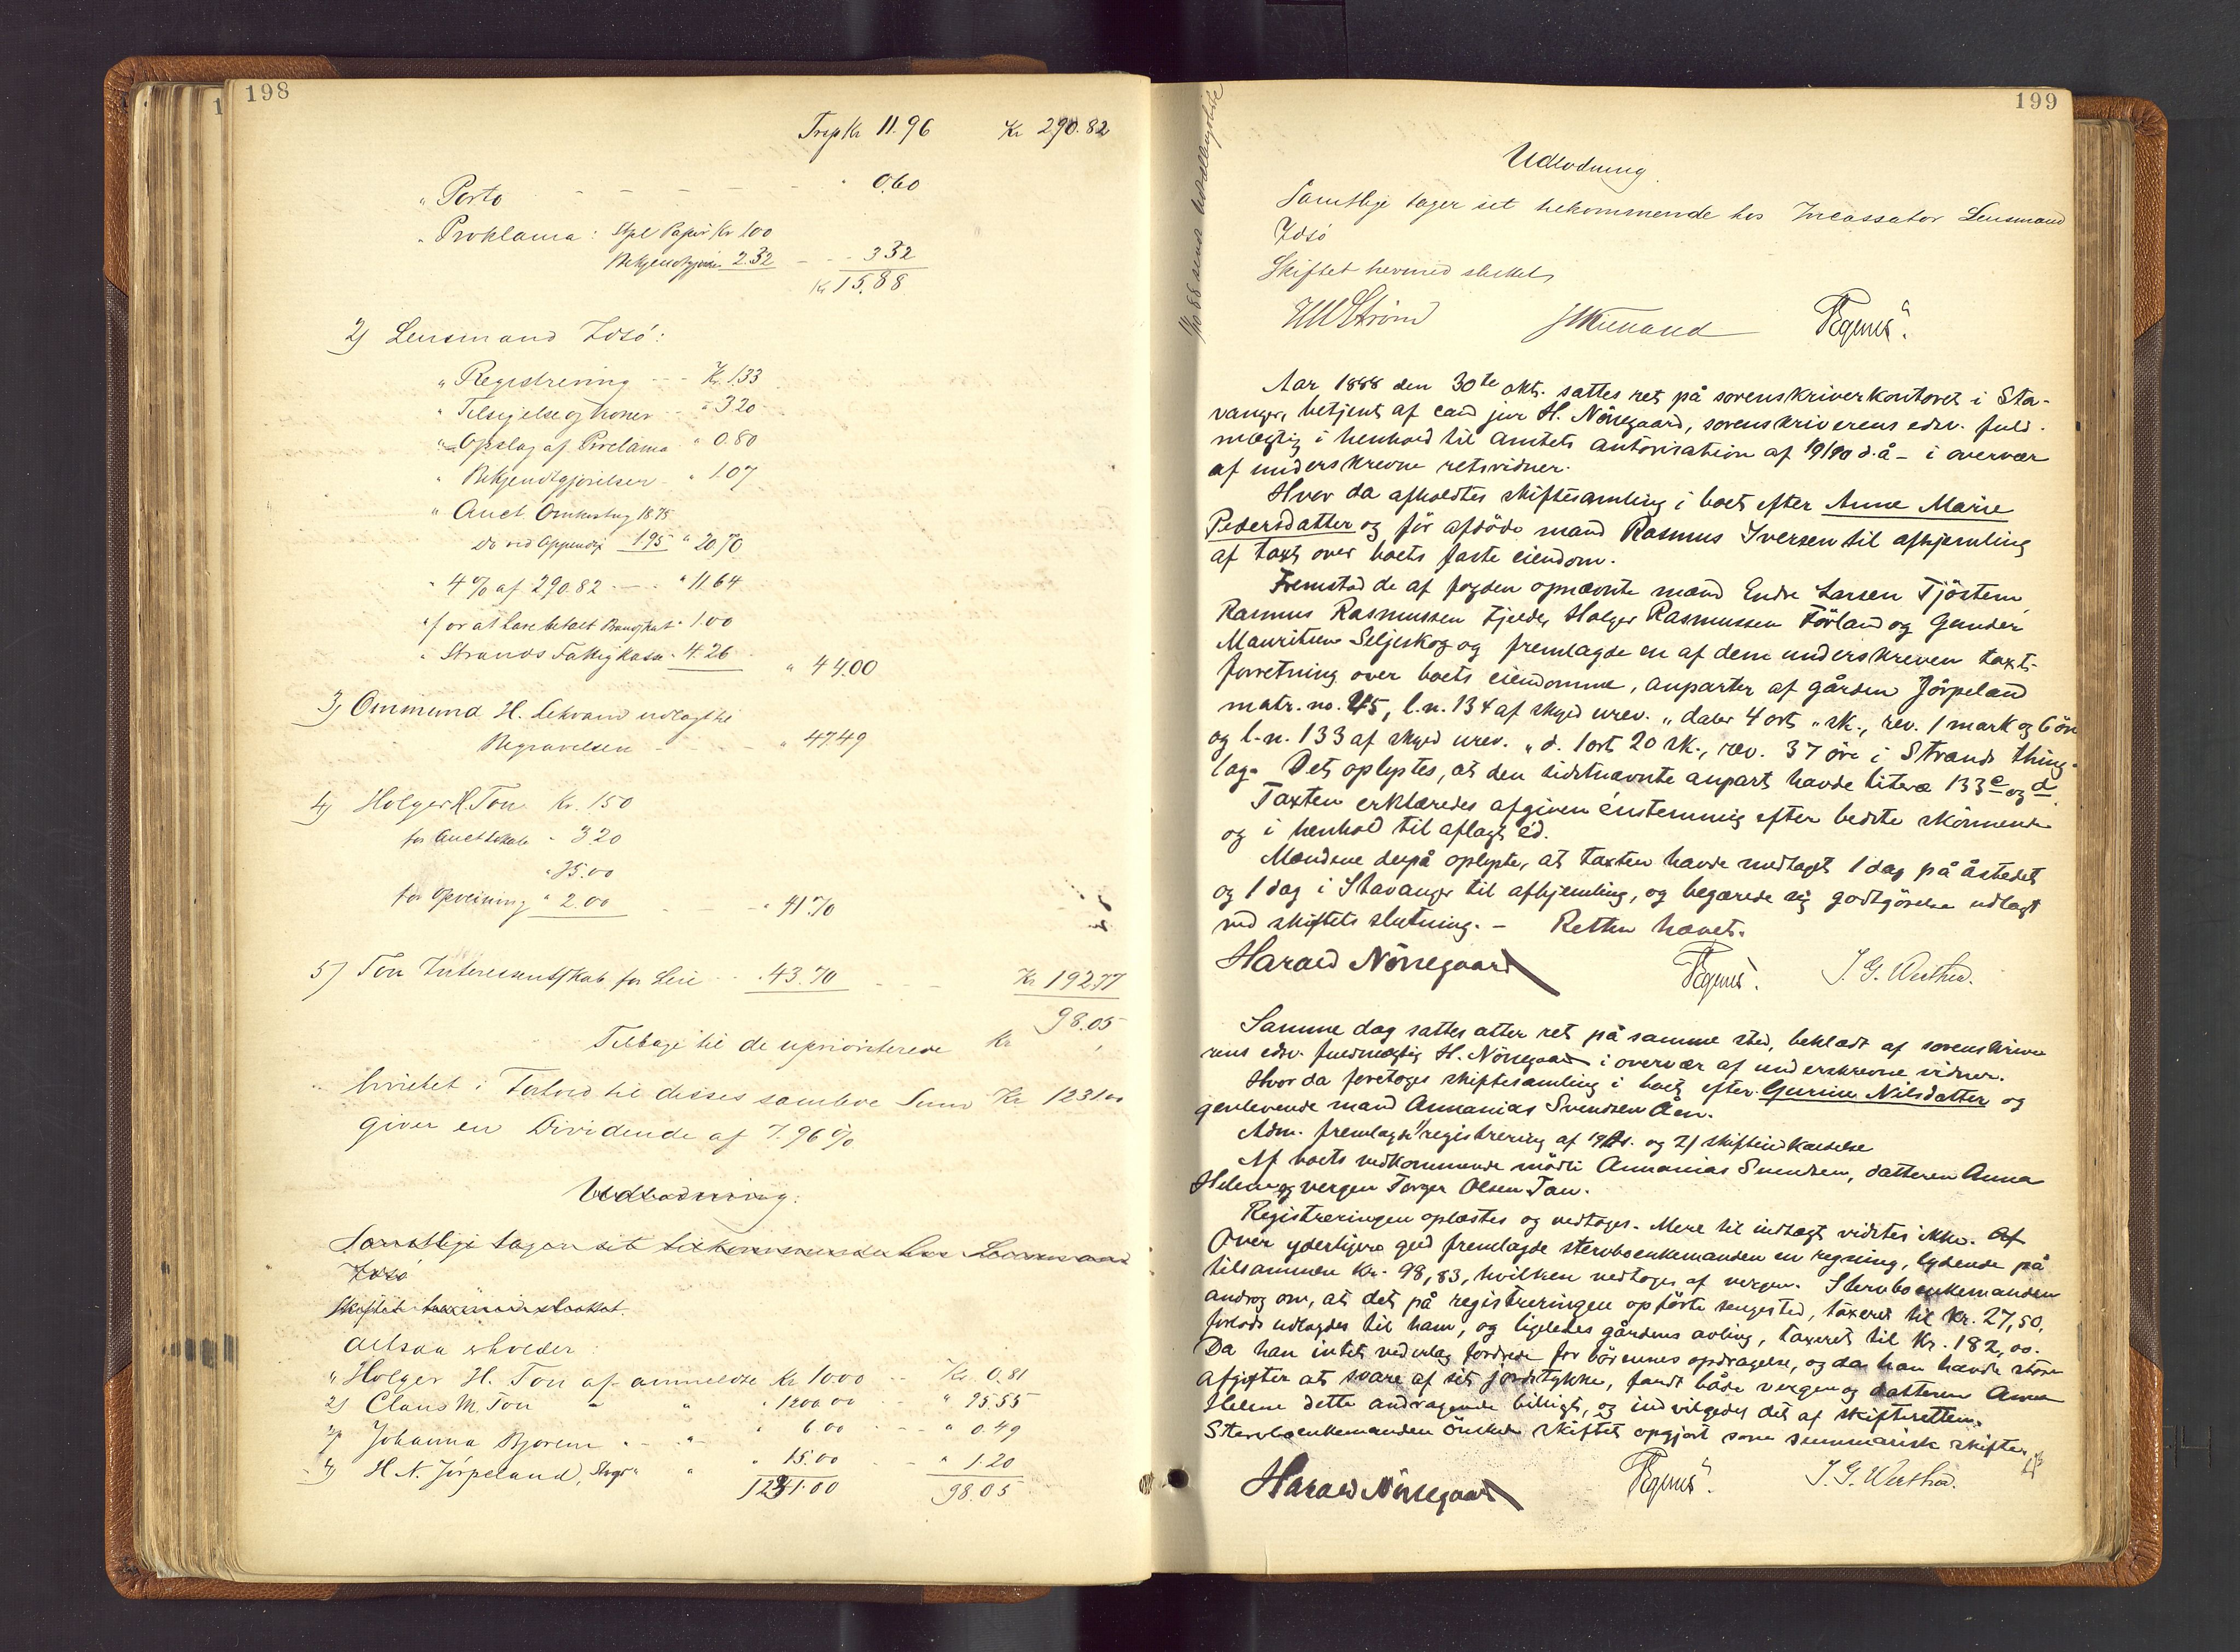 198
Trsp Kr 11.96 Kr 290.82
" Porto - - - - - " 0.60
" Proklama: Stpl Papir Kr 1.00
Bekjendtgjør. 2.32 - - 3.32
Kr 15.88
2) Lensmand Idsö:
" Registrering - - Kr. 1.33
" Tilsigelse og Kroner - " 3.20
" Opslag af Proclama " 0.80
" Bekjendtgjörelser - " 1.07
" Auct. Omkostng 18.75
Do ved Appendix 1.95 " 20.70
" 4 % af 290.82 - - " 11.64
" for at have betalt 1.00
" Strands Fattigkasse " 4.26 " 44.00
3) Ommund H. Lekvam udlagt til
Begravelsen - - - " 47.49
4) Holger H. Tou Kr. 1.50
for Auct.lokale " 3.20
" 35.00
for Opvisning " 2.00 - - " 41.70
5) Tou Interessentskab for Leie - - " 43.70 - - Kr 192.77
98.05
Tilbage til de uprioriterede Kr
hvilket i Forhold til disses samlede Sum Kr 1231.00
giver en Dividende af 7.96 %
Udlodning:
Samtlige tager sit tilkommende hos Lensmand
Idsö
Skiftet hermed sluttet.
Altsaa erholder:
" Holger H. Tou af anmeldte Kr 10.00 - - Kr. 0.81
2) Claus M. Tou " " " 1200.00 " 95.55
3) Johanna Bjoren " - " " 6.00 - - " 0.49
4) H. N. Jörpeland, Stvgr " " " 15.00 - " 1.20
1231.00 98.05
199
Udlodning.
Samtlige tager sit tilkommende hos Incassator Lensmand
Idsö
Skiftet hermed sluttet,
HWStröm Tegnes.
Aar 1888 den 30te okt. sattes ret på sorenskriverkontoret i Sta-
vanger, betjent af cand jur H. Nörregaard, sorenskriverens edsv. fuld-
mægtig i henhold til amtets autorisation af 19/10 d. å - i overvær
af underskrevne retsvidner.
Hvor da afholdtes skiftesamling i boet efter Anne Marie
Pedersdatter og för afdöde mand Rasmus Iversen til afhjemling
af taxt over boets faste eiendom.
Fremstod de af fogden opnævnte mænd Endre Larsen Tjöstem,
Rasmus Rasmussen Fjelde, Holger Rasmussen Förland og Gunder
Mauritsen Seljeskog og fremlagde en af dem underskreven taxt-
forretning over boets eiendomme, anparter af gården Jörpeland
matr. no. 45, l.n. 134 af skyld urev. " daler 4 ort " sk., rev. 1 mark og 6 öre
og l.n. 133 af skyld urev. " d. 1 ort 20 sk., rev. 37 öre i Strands thing-
lag. Det oplystes, at den sidstnævnte anpart havde litera 133 c og d.
Taxten erklæredes afgiven énstemmig efter bedste skjönnende
og i henhold til aflagt éd.
Mændene derpå oplyste, at taxten havde medtaget 1 dag på åstedet
og 1 dag i Stavanger til afhjemling, og begærede sig godtgörelse udlagt
ved skiftets slutning. - Retten hævet.
Harald Nörregaard Tegnes. J. G. Wersted.
Samme dag sattes atter ret på samme sted, beklædt af sorenskrive-
rens edsv. fuldmægtig H. Nörregaard i overvær af underskrevne vidner.
Hvor da foretoges skiftesamling i boet efter Gurine Nilsdatter og
genlevende mand Annanias Svendsen Åen.
Adm. fremlagde 1/ registrering af 19 ds. og 2/ skifteindkaldelse
Af boets vedkommende mödte Annanias Svendsen, datteren Anna
Helene og vergen Torger Olsen Tau.
Registreringen oplæstes og vedtoges. Mere til indtægt vidstes ikke. Af
Over yderligere gjeld fremlagde sterboenkemanden en regning, lydende på
tilsammen Kr. 98,83, hvilken vedtoges af vergen. Sterboenkemanden
androg om, at det på registreringen opförte sengested, taxeret til Kr. 27,50,
forlods udlagdes til ham, og ligeledes gårdens avling, taxeret til Kr. 182,00.
Da han intet vederlag fordrede for börnenes opdragelse, og da han havde större
afgifter at svare af sit jordstykke, fandt både vergen og datteren Anna
Helene dette andragende billigt, og indvilgedes det af skifteretten.
Sterboenkemanden önskede skiftet opgjort som summarisk skifte.
Harald Nörregaard Tegnes. J. G. Wersted.